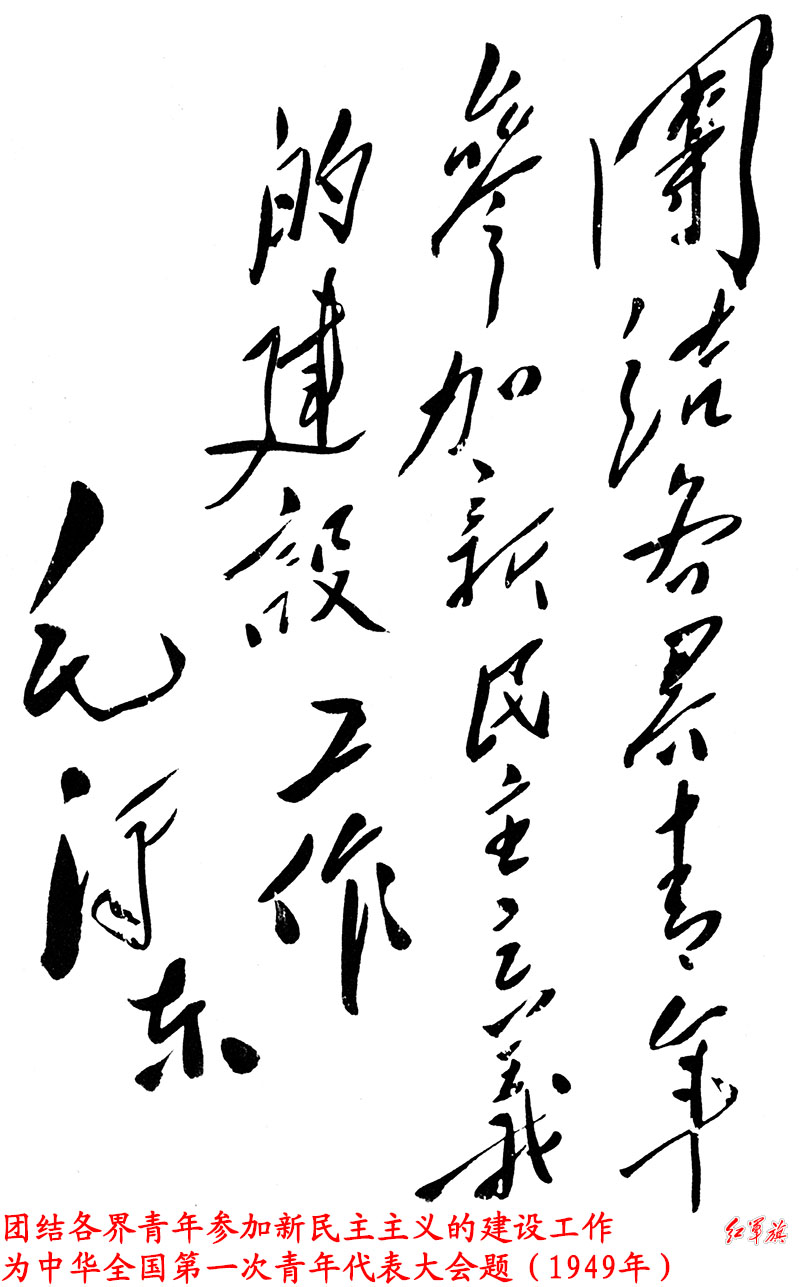 團結各界青年
參加新民主主義
的建設工作
毛泽东
团结各界青年参加新民主主义的建设工作
为中华全国第一次青年代表大会题（1949年）
红军旗